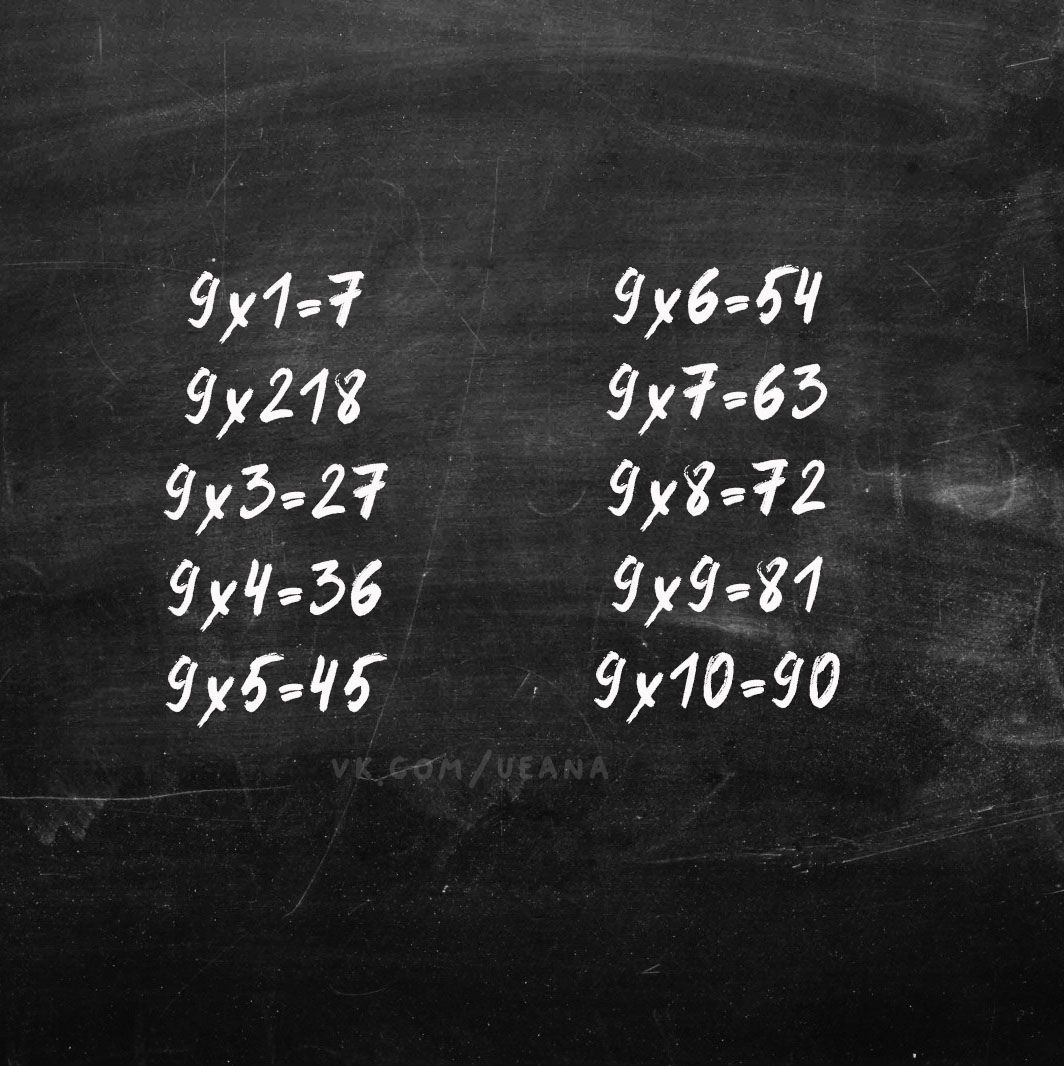 9x1=7
9x218
9x3=27
9x4=36
9x5=45
9x6=54
9x7=63
9x8=72
9x9=81
9x10=90
VK.COM/UEANA